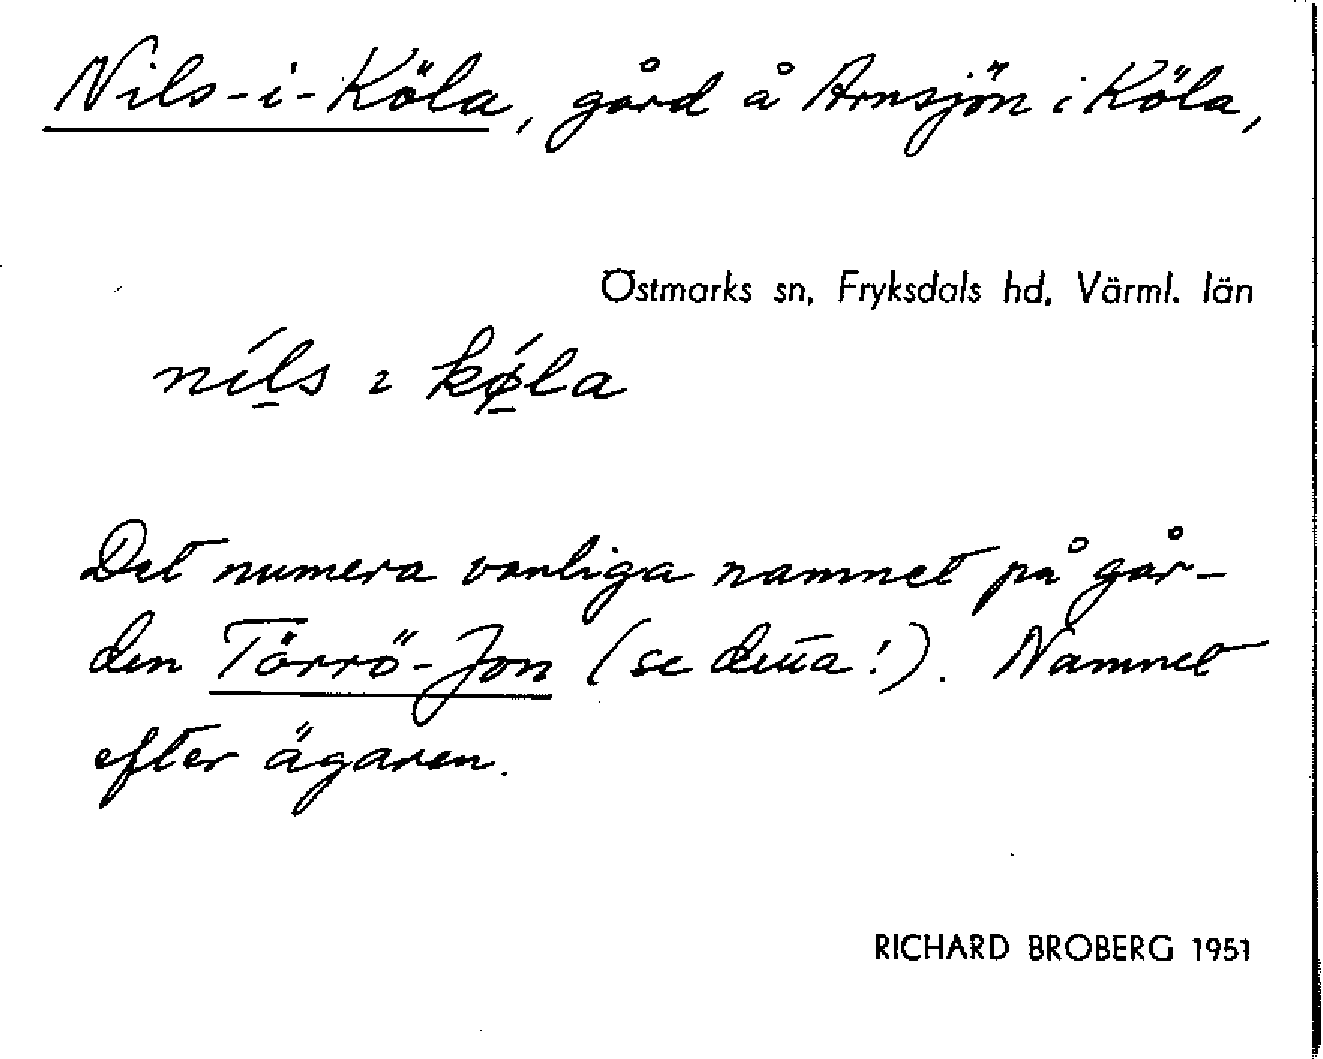 Nils-i-Köla, gård å Arnsjön i Köla,
Östmarks sn, Fryksdals hd, Värml. län
níl̠s ɩ kǿ̠la
Det numera vanliga namnet på går-
den Törrö-Jon (se detta!). Namnet
efter ägaren.
RICHARD BROBERG 1951